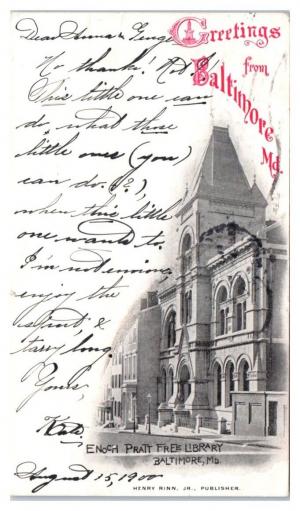 Greetings
from
Baltimore
Md.
Dear Anna &
No thanks! Not I!
This little one can
do, what those
little ones (you)
can do. (?)
when this little
one wants to.
I'm not envious
enjoy the
sport &
tarry long.
Yours,
August 15, 1900
ENOCH PRATT FREE LIBRARY
BALTIMORE, MD.
HENRY RINN, JR., PUBLISHER.